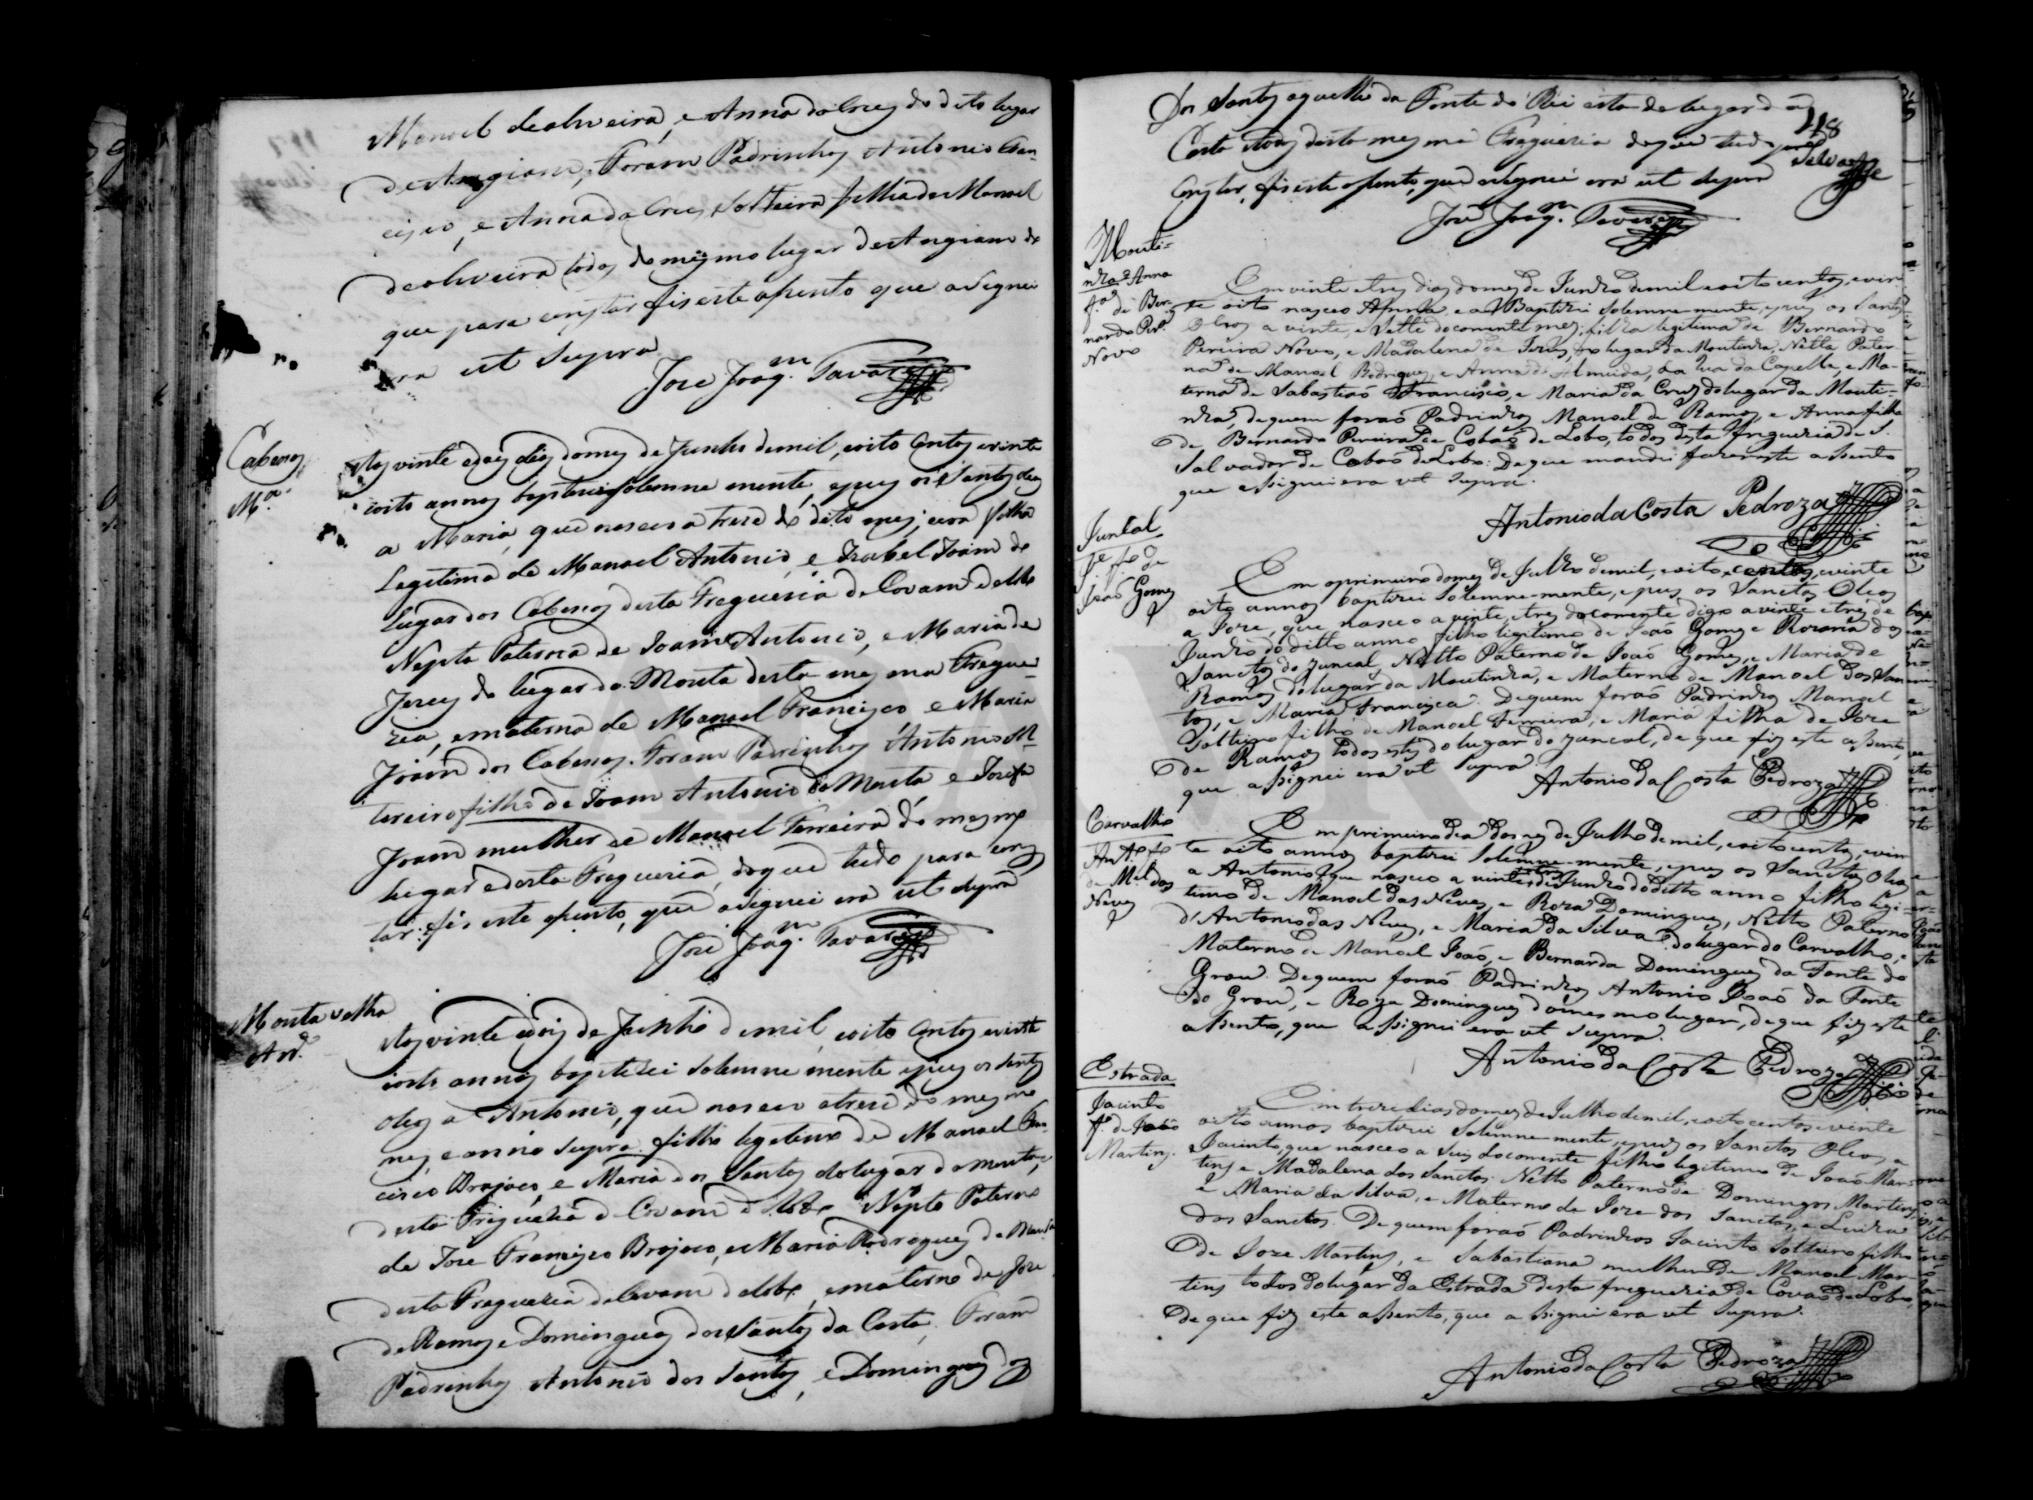 Manoel de oliveira, e Anna da Crus do dito lugar
de Angiam, Foram Padrinhos Antonio Fran-
cisco, e Anna da Crus solteira filha de Manoel
de oliveira todos do mesmo lugar de Angiam do
que para constar fis este asento que asignei
era ut supra
Jose Joaq.m Tavares
Cabesos
M.a
Aos vinte e dois dias do mes de Junho de mil, e oito Centos e vinte
e oito annos baptizei solemne mente, e pus os santos oleos
a Maria, que nasceo a trese do dito mes, e era filha
Legitima de Manoel Antonio, e Izabel Joam do
lugar dos Cabesos desta Freguesia de Covam do Lobo
Nepta Paterna de Joam Antonio, e Maria de
Jesus do lugar da Mouta desta mesma Fregue-
zia, e materna de Manoel Francisco e Maria
Joam dos Cabesos. Foram Padrinhos Antonio
filho de Joam Antonio da Mouta e Josefa
Joam mulher de Manoel Ferreira do mesmo
lugar e desta Freguesia, do que tudo para cons
tar fis este asento, que asignei era ut supra
Jose Joaq.m Tavares
Mouta velha
Ant.o
Aos vinte e dois de Junho de mil, e oito Centos e vinte
e oito annos baptizei solemne mente e pus os santos
oleos a Antonio, que nasceo a trese do mesmo
mes, e anno supra filho legitimo de Manoel Fran-
cisco Brojoco, e Maria dos Santos do lugar da Mouta,
desta Freguesia de Covam do Lobo Nepto Paterno
de Jose Francisco Brojoco, e Maria Rodrigues da Mouta
desta Freguesia de Covam do Lobo, e materno de Jose
de Ramos e Domingas dos Santos da Costa, Foram
Padrinhos Antonio dos Santos, e Domingas
118
Dos Santos aquelle da Fonte do Rei esta do lugar da
Costa todos desta mesma Freguesia do que tudo para
constar, fis este asento, que asignei era ut supra
Jose Joaq.m Tavares
Mouti-
nha Anna
f.a de Ber-
nardo Per.a
Novo
Em vinte e tres dias do mes de Junho de mil e oito centos, e vin-
te oito nasceo Anna, e a Baptizei solemne-mente, e pus os Santos
Oleos a vinte, e sette do corrente mes; filha legitima de Bernardo
Pereira Novo, e Madalena de Jesus, do lugar da Moutinha, Netta Pater-
na de Manoel Rodrigues, e Anna de Almeida, da Rua da Capella, e Ma-
terna de Sabastiaõ Francisco, e Maria da Cruz do lugar da Mouti-
nha, de quem foraõ Padrinhos Manoel de Ramos, e Anna filha
de Bernardo Pereira de Cobaõ do Lobo, todos desta freguezia de S.
Salvador de Cobaõ do Lobo: De que mandei fazer este assento
que assignei era ut supra.
Antonio da Costa Pedroza
Juncal
Je f.o de
Joaõ Gomes
Em o primeiro do mes de Julho de mil, e oito centos, e vinte
oito annos baptizei solemne-mente, e pus os Sanctos Oleos
a Joze, que nasceo a vinte, e tres do corrente digo a vinte e tres de
Junho do ditto anno filho legitimo de Joaõ Gomes e Rozaria dos
Sanctos do Juncal, Netto Paterno de Joaõ Gomes, e Maria de
Ramos do lugar da Moutinha, e Materno de Manoel dos San-
tos, e Maria Francisca. De quem foraõ Padrinhos Manoel
Solteiro filho de Manoel Ferreira, e Maria filha de Joze
de Ramos todos estes do lugar do Juncal, de que fiz este assento,
que assignei era ut supra.
Antonio da Costa Pedroza
Carvalho
Ant.o f.o
de M.el das
Neves
Em primeiro dia do mes de Julho de mil, e oito centos, e vin-
te oito annos baptizei solemne-mente, e pus os Sanctos Oleos
a Antonio, que nasceo a vinte Junho do ditto anno filho legi-
timo de Manoel das Neves, e Roza Domingues, Netto Paterno
d'Antonio das Neves, e Maria da Silva do lugar do Carvalho, e
Materno de Manoel Joaõ, e Bernarda Domingues da Fonte do
Grou. De quem foraõ Padrinhos Antonio Joaõ da Fonte
do Grou, e Roza Domingues do mesmo lugar, de que fiz este
assento, que assignei era ut supra.
Antonio da Costa Pedroza
Estrada
Jacinto
f.o de Joaõ
Martins.
Em treze dias do mes de Julho de mil, e oito centos e vinte
oito annos baptizei solemne-mente, e puz os Sanctos Oleos, a
Jacinto, que nasceo a seis do corrente filho legitimo de Joaõ Mar-
tins e Madalena dos Sanctos. Netto Paterno de Domingos Martins
e Maria da Silva, e Materno de Joze dos Sanctos, e Luiza
dos Sanctos. De quem foraõ Padrinhos Jacinto solteiro filho
de Joze Martins, e Sabastiana mulher de Manoel Mar-
tins todos do lugar da Estrada desta freguezia de Covaõ do Lobo,
de que fiz este assento, que assignei era ut supra.
Antonio da Costa Pedroza